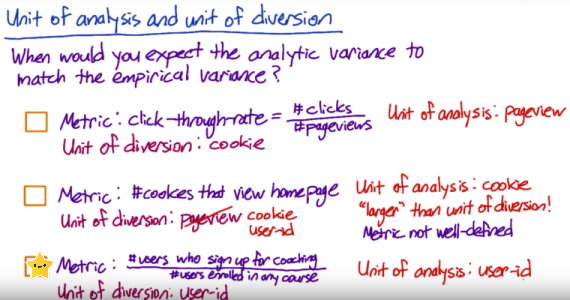 Unit of analysis and unit of diversion
When would you expect the analytic variance to
match the empirical variance?
Metric: click-through-rate = #clicks / #pageviews Unit of analysis: pageview
Unit of diversion: cookie
Metric: #cookies that view homepage Unit of analysis: cookie
Unit of diversion: pageview cookie "larger" than unit of diversion!
user-id Metric not well-defined
Metric: #users who sign up for coaching / #users enrolled in any course Unit of analysis: user-id
Unit of diversion: user-id